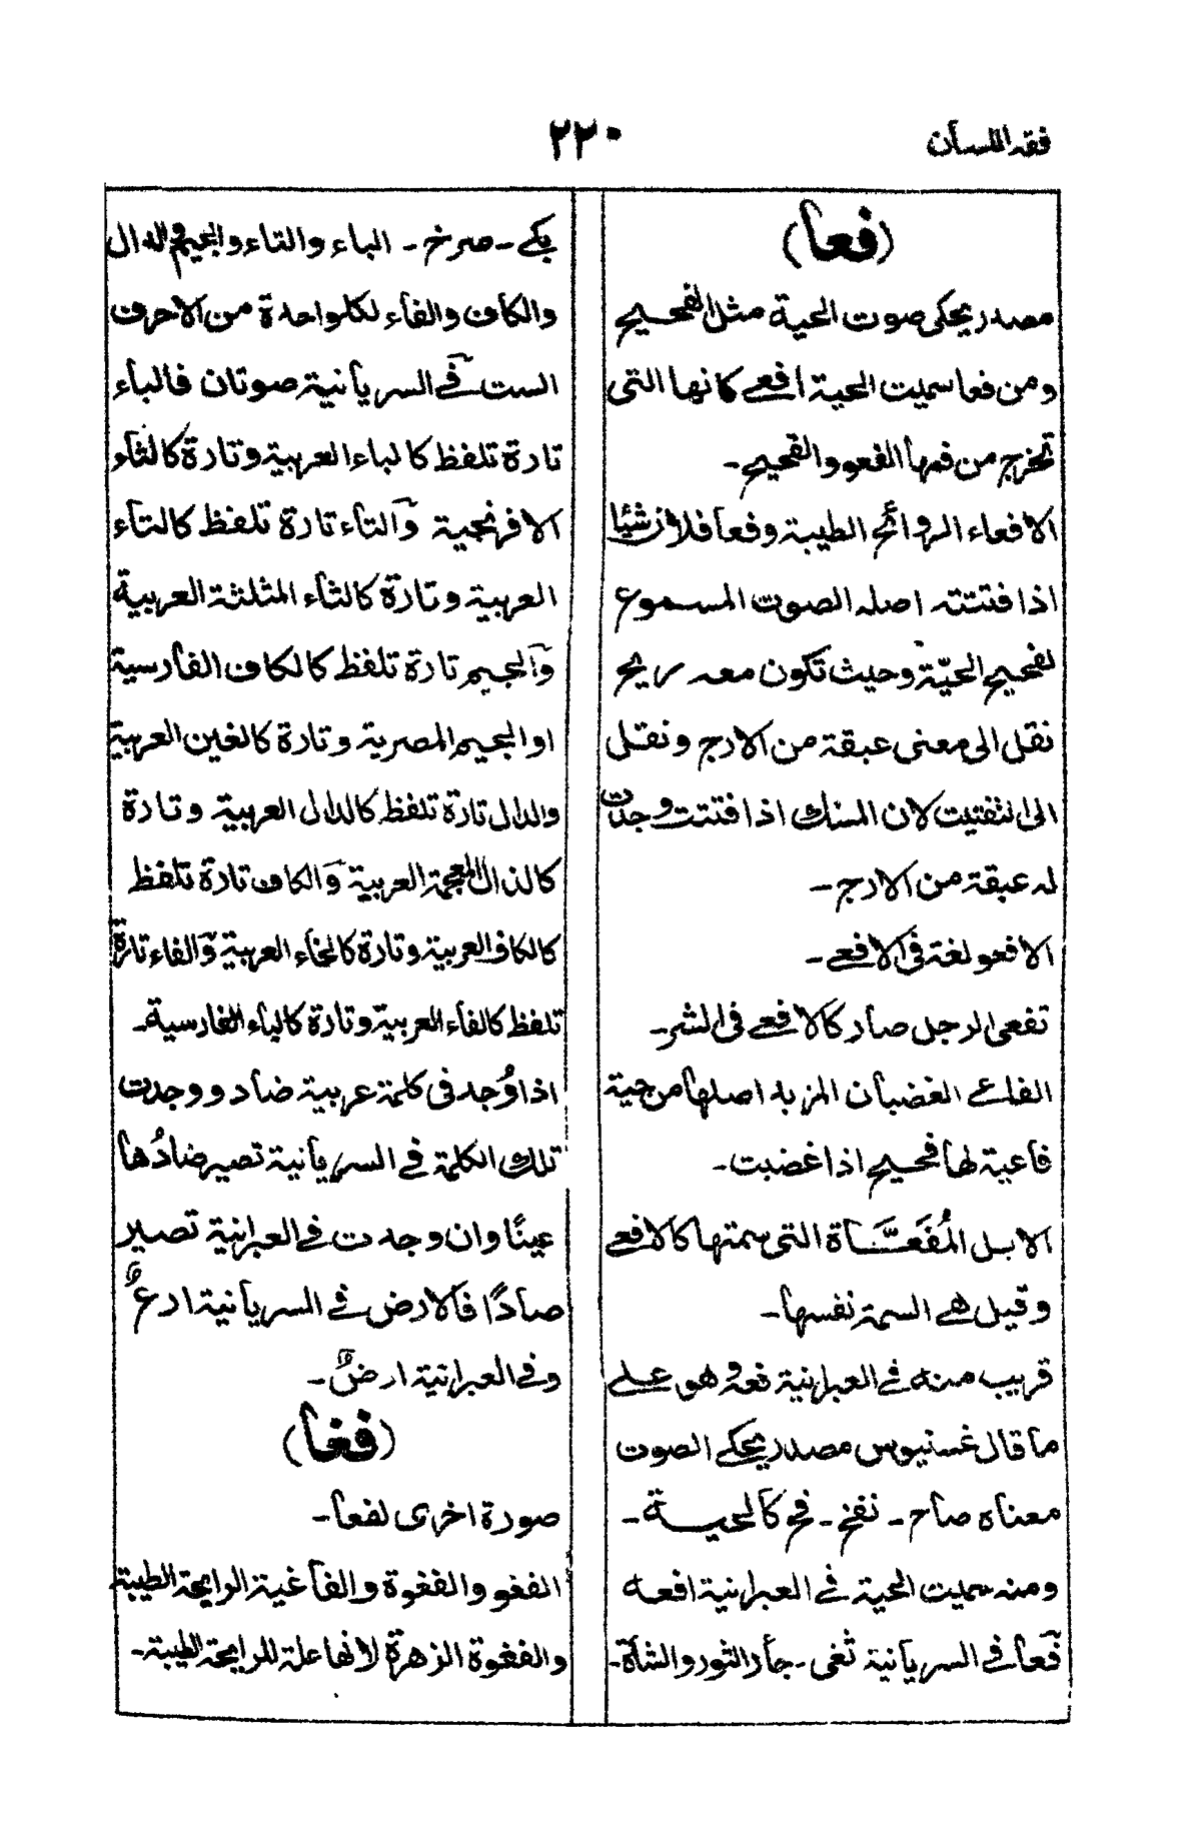 فقه اللسان
٢٢٠
(فعا)
مصدر يحكى صوت الحية مثل الفحيح
ومن فعا سميت الحية افعے كانها التى
تخرج من فمها الفعو والفحيح-
الافعاء الروائح الطيبة وفعا فلان شيئا
اذا فتتته اصله الصوت المسموع
لفحيح الحيّة وحيث تكون معه ريح
نقل الى معنى عبقة من الارج ونقل
الى التفتيت لان المسك اذا فتتت وجدت
له عبقة من الارج-
الافعو لغة فى الافعے-
تفعى الرجل صار كالافعے فى الشر-
الفاعے الغضبان المزبد اصلها من حية
فاعية لها فحيح اذا غضبت-
الابل المُفَعَّاة التى سمتها كالافعے
وقيل هے السمة نفسها-
قريب منه فے العبرانية فعه وهو علے
ما قال غسنيوس مصدر يحكے الصوت
معناه صاح- نفخ- فح كالحية-
ومنه سميت الحية فے العبرانية افعه
فعا فے السريانية ثغى- جأر الثور والشاة-
بكے- صرخ- الباء والتاء والجيم والدال
والكاف والفاء لكل واحدة من الاحرف
الست فے السريانية صوتان فالباء
تارة تلفظ كالباء العربية وتارة كالثاء
الافرنجية والتاء تارة تلفظ كالتاء
العربية وتارة كالثاء المثلثة العربية
والجيم تارة تلفظ كالكاف الفارسية
او الجيم المصرية وتارة كالغين العربية
والدال تارة تلفظ كالدال العربية وتارة
كالذال المعجمة العربية والكاف تارة تلفظ
كالكاف العربية وتارة كالخاء العربية والفاء تارة
تلفظ كالفاء العربية وتارة كالپاء الفارسية-
اذا وُجد فى كلمة عربية ضاد ووجدت
تلك الكلمة فے السريانية تصير ضادُها
عينًا وان وجدت فے العبرانية تصير
صادًا فالارض فے السريانية ارعٌ
وفے العبرانية ارصٌ-
(فغا)
صورة اخرى لفعا-
الفغو والفغوة والفاغية الرايحة الطيبة
والفغوة الزهرة لانها علة للرايحة الطيبة-